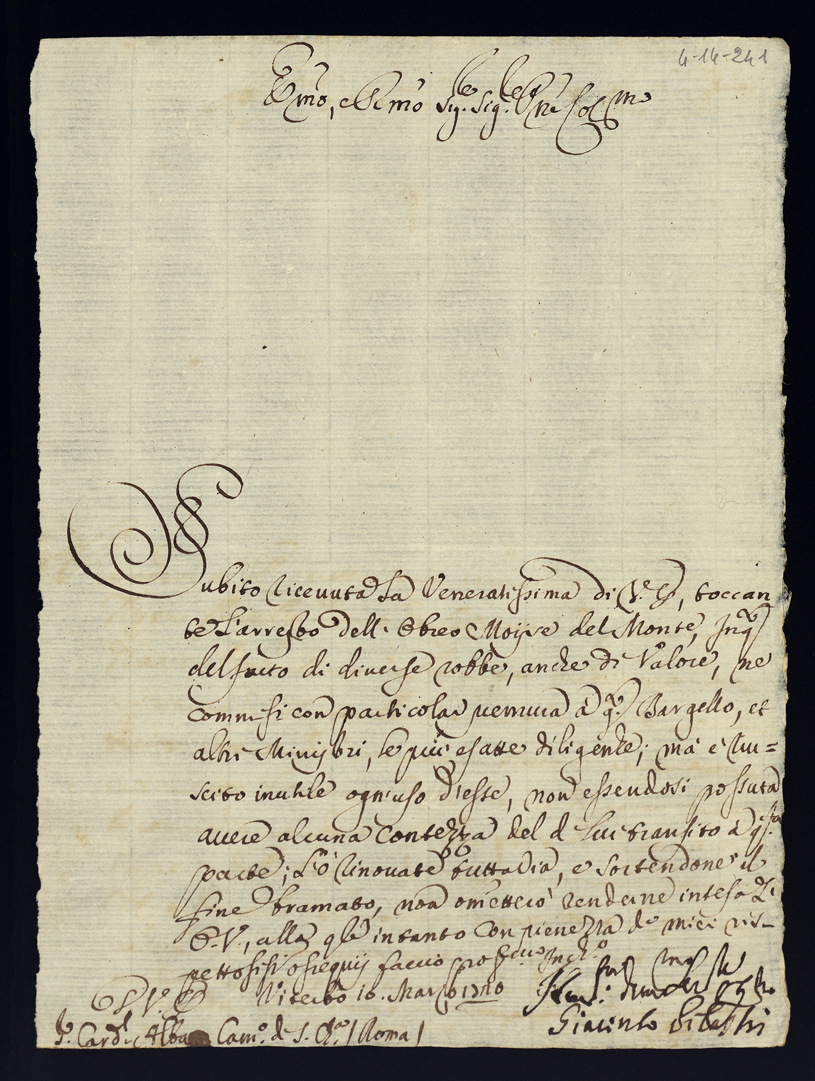 4-14-241
Emo, e Rmo Sig.re Sig.re Pne Col.mo
Subito ricevuta la Veneratissima di V. E, toccan
te l'arresto dell'Ebreo Moijse del Monte, Inq.to
del furto di diverse robbe, anche di Valore, ne
commisi con particolar premura à q.to Bargello, et
altri Ministri, le più esatte diligenze; mà è riu=
scito inutile ogni uso d'esse, non essendosi possuta
avere alcuna contezza del d.o suo transito à q.sta
parte; L'ò rinovate tuttavia, e sortendone il
fine bramato, non ometterò renderne intesa l'
E.V., alla q.le intanto con pienezza de miei ris-
pettosissi ossequij faccio prof.mo Inch.o
Viterbo 16. Marzo 1720
Giacinto
S.r Card. Alba Cam.o di S. Ch.a / Roma /